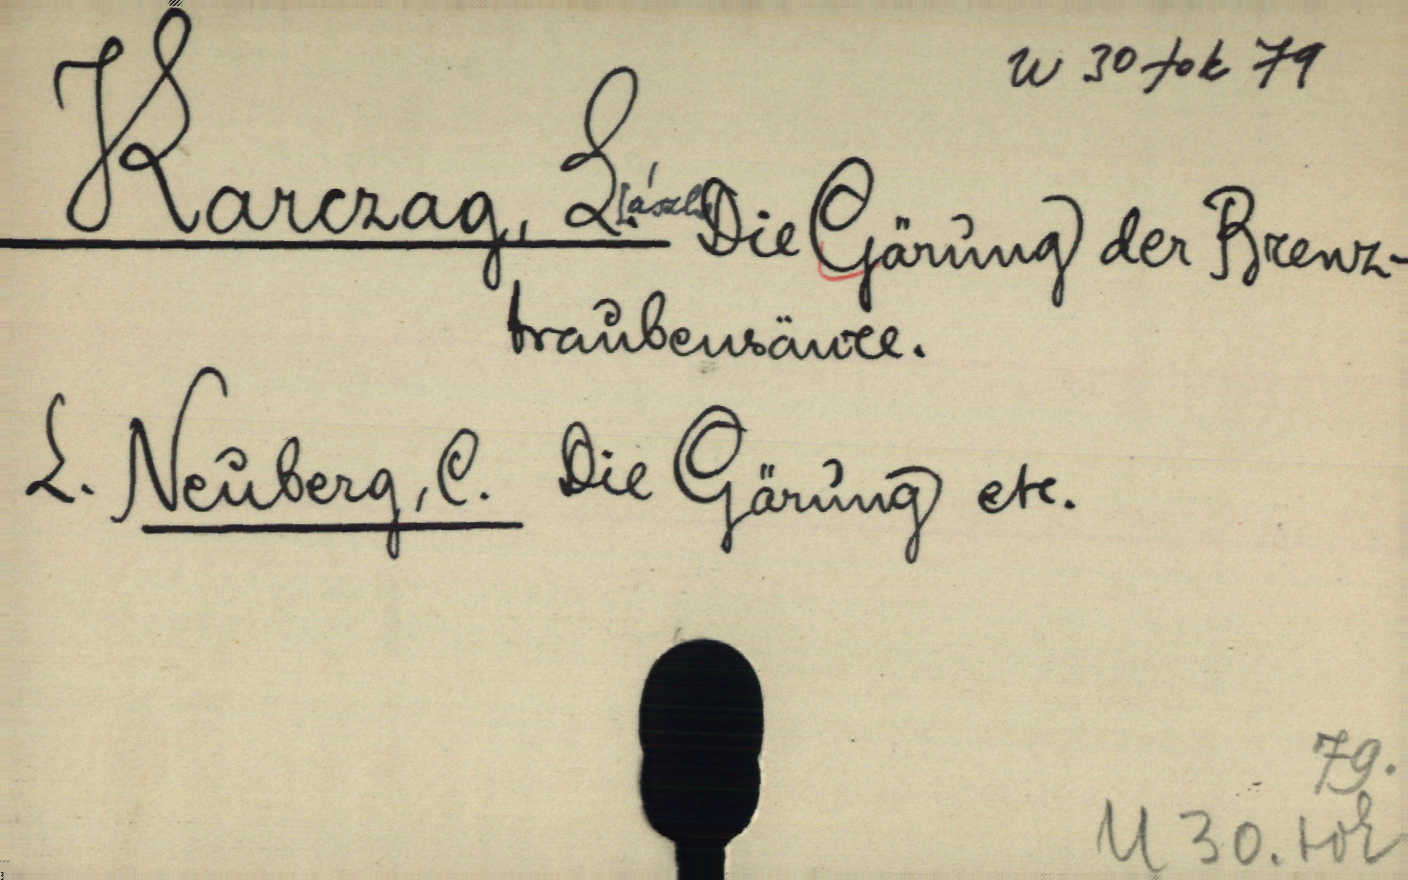 W 30 tok 79
Karczag, L[ászló] Die Gärung der Brenz-
traubensäure.
L. Neuberg, C. Die Gärung etc.
79.
U 30. tok